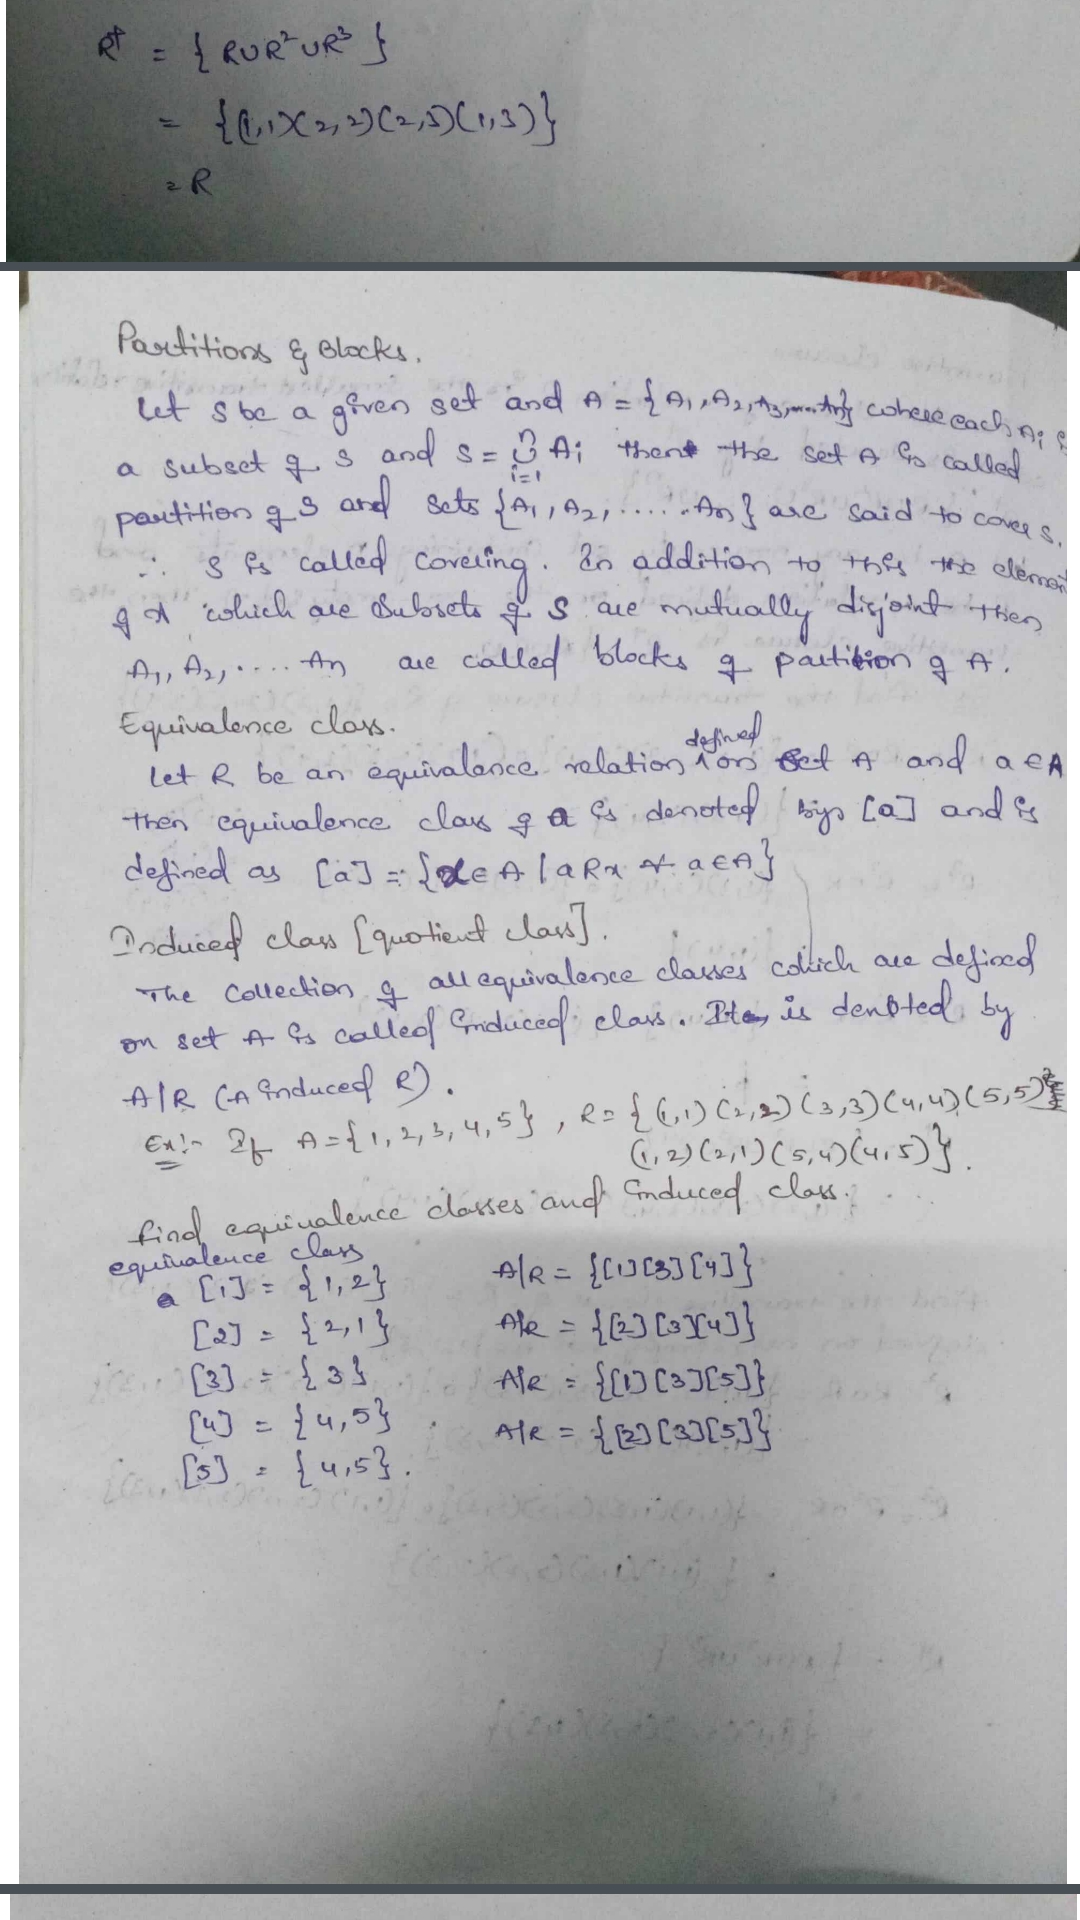 R⁺ = { R∪R²∪R³ }
= {(1,1)(2,2)(2,3)(1,3)}
= R
Partitions & Blocks.
Let S be a given set and A = { A₁, A₂, A₃,.... An} where each Ai is
a subset of S and S = ⋃ⁿᵢ₌₁ Ai then the set A is called
partition of S and sets {A₁, A₂, ...... An} are said to cover S.
∴ S is called covering. In addition to this the element
of A which are Subsets of S are mutually disjoint then
A₁, A₂, .... An are called blocks of partition of A.
Equivalence class.
Let R be an equivalence relation defined on set A and a ∈ A
then equivalence class of a is denoted by [a] and is
defined as [a] = {x ∈ A | aRx ∀ a ∈ A}
Induced class [quotient class].
The collection of all equivalence classes which are defined
on set A is called induced class. It is denoted by
A|R (A induced R).
Ex:- If A = {1, 2, 3, 4, 5}, R = { (1,1) (2,2) (3,3) (4,4) (5,5)
(1,2) (2,1) (5,4) (4,5)}.
find equivalence classes and induced class.
equivalence class
[1] = {1,2} A|R = {[1][3][4]}
[2] = {2,1} A|R = {[2][3][4]}
[3] = {3} A|R = {[1][3][5]}
[4] = {4,5} A|R = {[2][3][5]}
[5] = {4,5}.